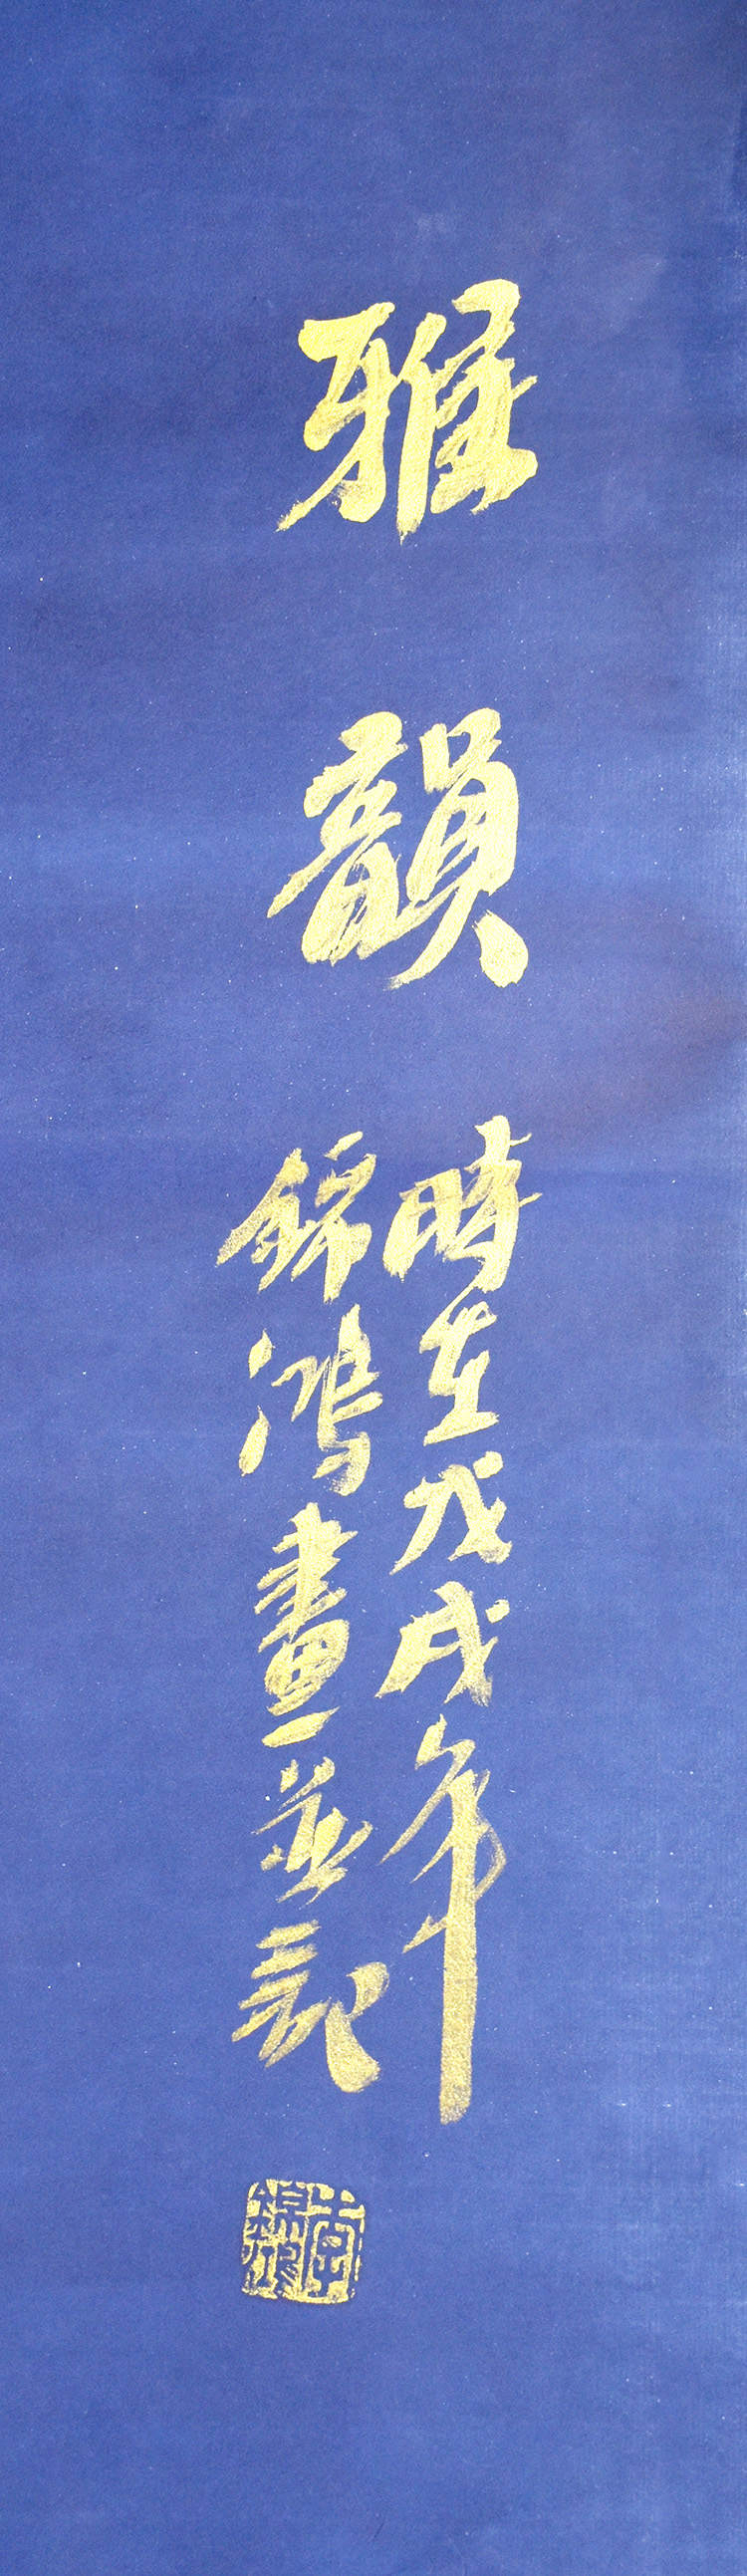 雅韻
時在戊戌年
錦鴻畫並記